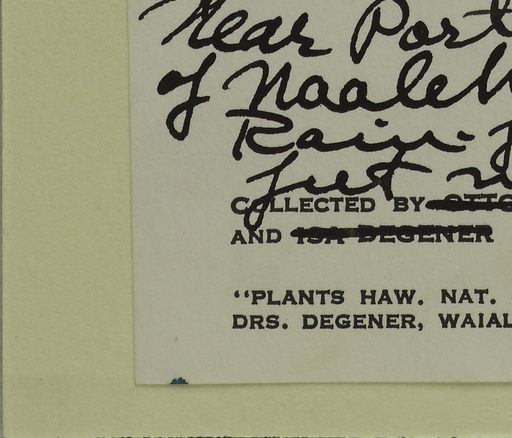 Near Port
of Naaleh
Rain-f
Just n
COLLECTED BY OTTO
AND ISA DEGENER
"PLANTS HAW. NAT.
DRS. DEGENER, WAIAL